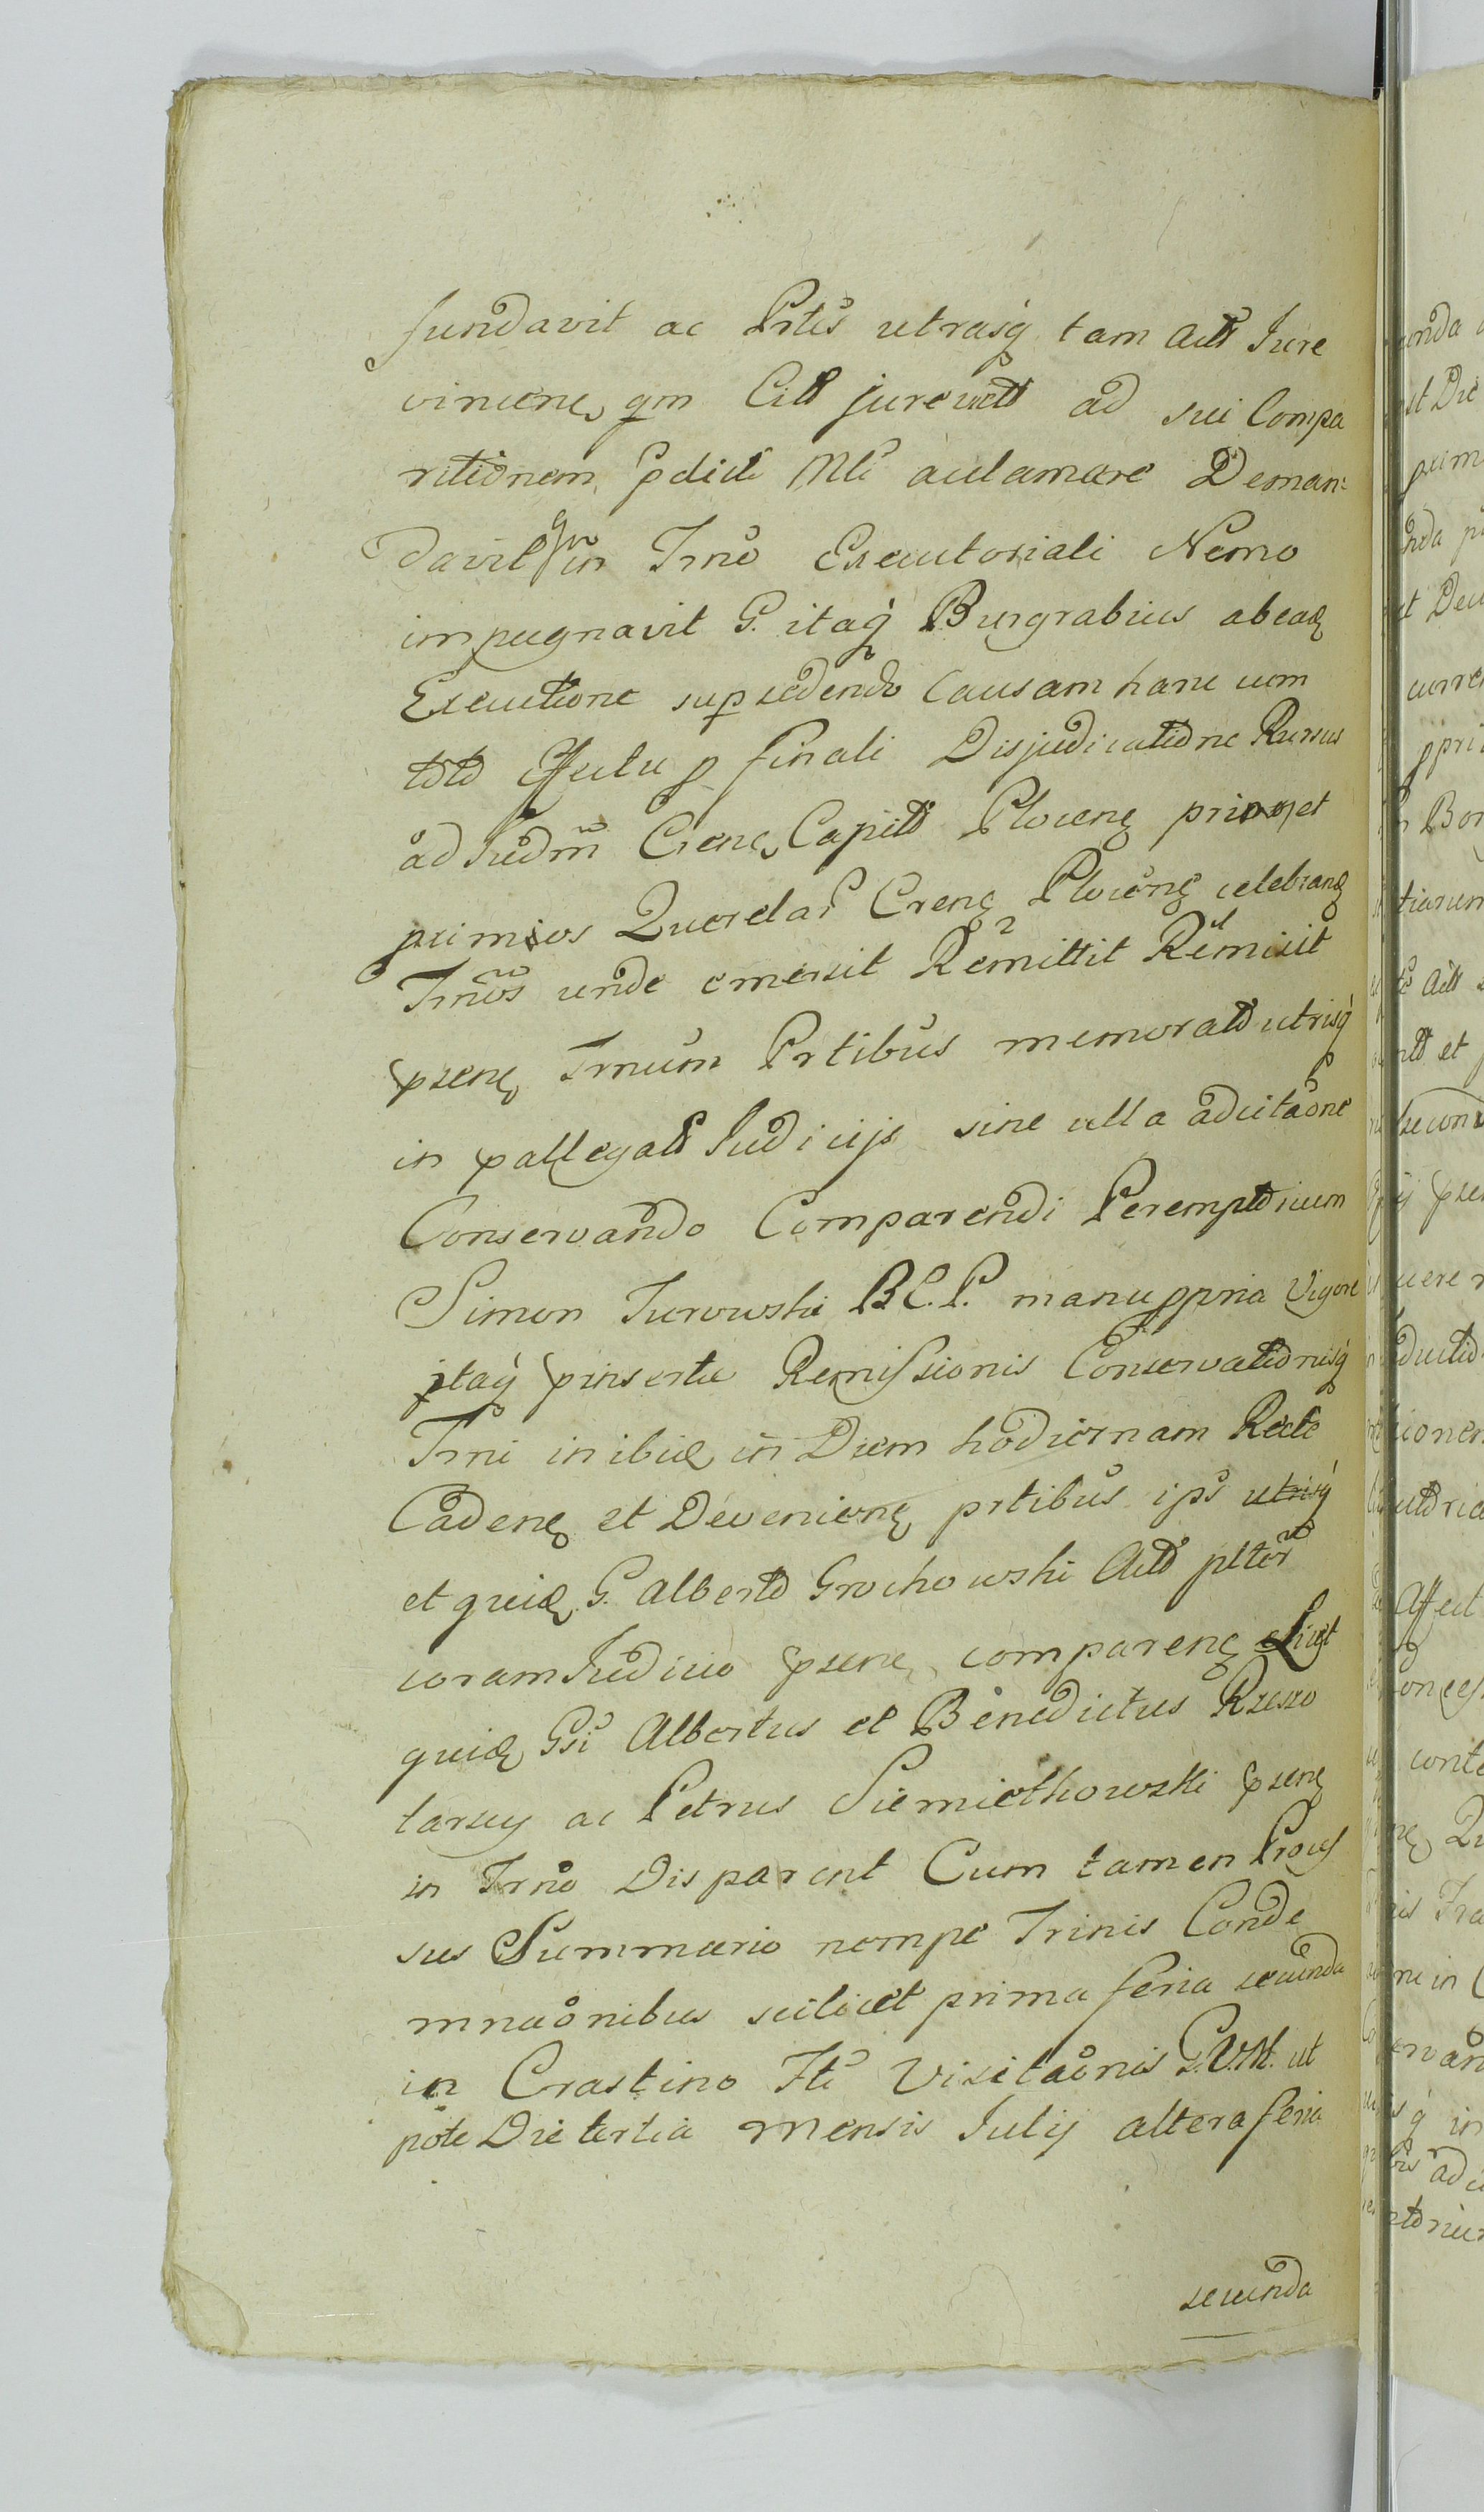 fundavit ac Prtes utrasq́ tam Actt Jure
vincene qm Citt jurevictt ad sui Compa
ritionem pdicti Mti aulamare Deman:
davit qm in Trno Executoriali Nemo
impugnavit G. itaq́ Burgrabius ab ead
Executione supsedendo Causam hanc cum
toto effectu p finali Disjudicatione Rursus
ad Judm Crens Capitt Plocens primo et
primivos Querelar Crens Plocens celebrand
Trnos unde emersit Remittit Remisit
psens Trnum Prtibus memorat utrisq́
in pallegatt Judicijs sine ulla adcitaone
Conservando Comparendi Peremptorium
Simon Turowski B.C.P. manu ppria Vigore
jtaq́ pinserte Remissionis Conservationisq́
Trni in ibid in Diem hodiernam Recte
Cadens et Deveniens prtibus ips utrisq́
et quid G. Alberto Grochowski Act pltor
coram Judicio psens comparens Licet
quid Gsi Albertus et Benedictus Rzeszo
tarscy ac Petrus Siemiethowski psens
in Trno Disparent Cum tamen Proces
sus Summario nempe Trinis Conde
mnaonibus scilicet prima feria secunda
in Crastino Fti Visitaonis B.V.M. ut
pote Die tertia Mensis Julij altera feria
secunda